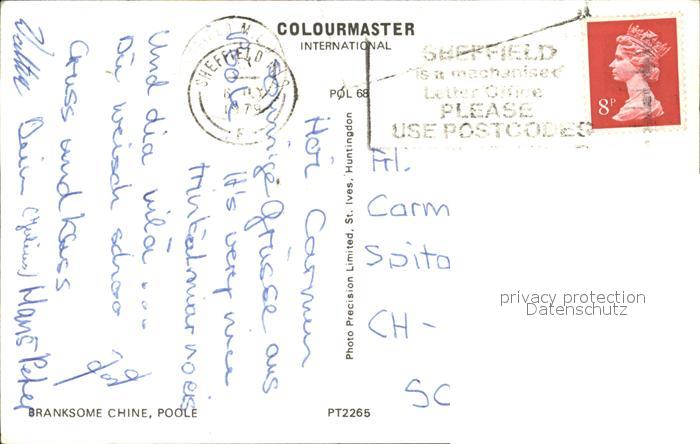 COLOURMASTER
INTERNATIONAL
POL 68
SHEFFIELD
1979
SHEFFIELD
is a mechanised
Letter Office
PLEASE
USE POSTCODES
8P
Hoi Carmen
Sonnige Grüsse aus
It's very nice
Und dia vilä ...
Du weisch schoo
Gruss und Kuss
Dein Hans Peter
Photo Precision Limited, St. Ives, Huntingdon
Frl.
Carm
Spita
CH -
SC
privacy protection
Datenschutz
BRANKSOME CHINE, POOLE
PT2265